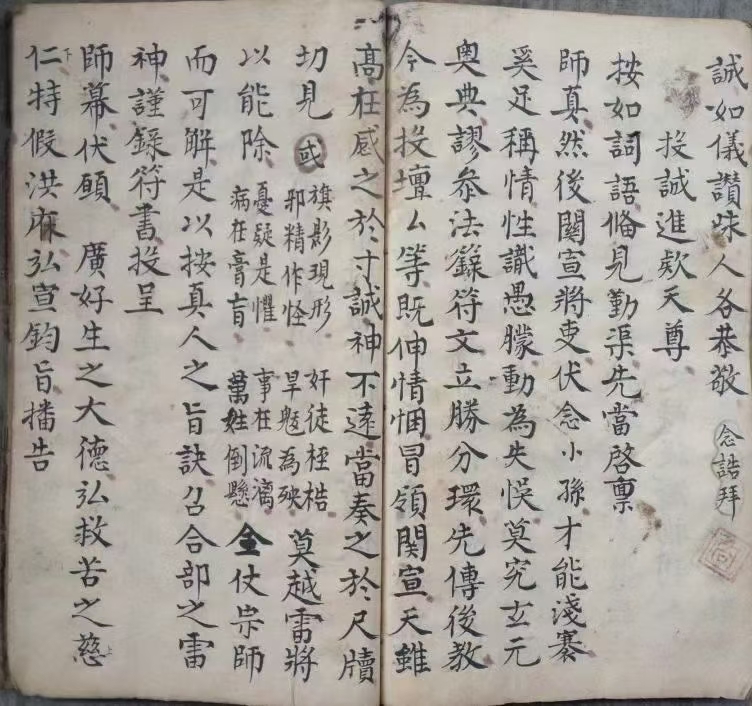 誠如儀讚味人各恭敬 念誥拜
投誠進欵天尊
按如詞語俻見勤渠先當啓禀
師真然後關宣將吏伏念小孫才能淺寡
奚足稱情性識愚朦動為失悮莫究玄元
奥典謬叅法籙符文立勝分環先傳後教
今為投壇厶等既伸情悃冒領関宣天雖
髙在感之於寸誠神不遠當奏之於尺牘
切見 或 旗影現形 邪精作怪 奸徒桎梏 旱魃為殃 莫越雷將
以能除 憂疑是懼 病在膏肓 事在流漓 萬姓倒懸 全仗宗師
而可解是以按真人之旨訣召合部之雷
神謹錄符書投呈
師幕伏願 廣好生之大德弘救苦之慈
仁特假洪庥弘宣鈞旨播告